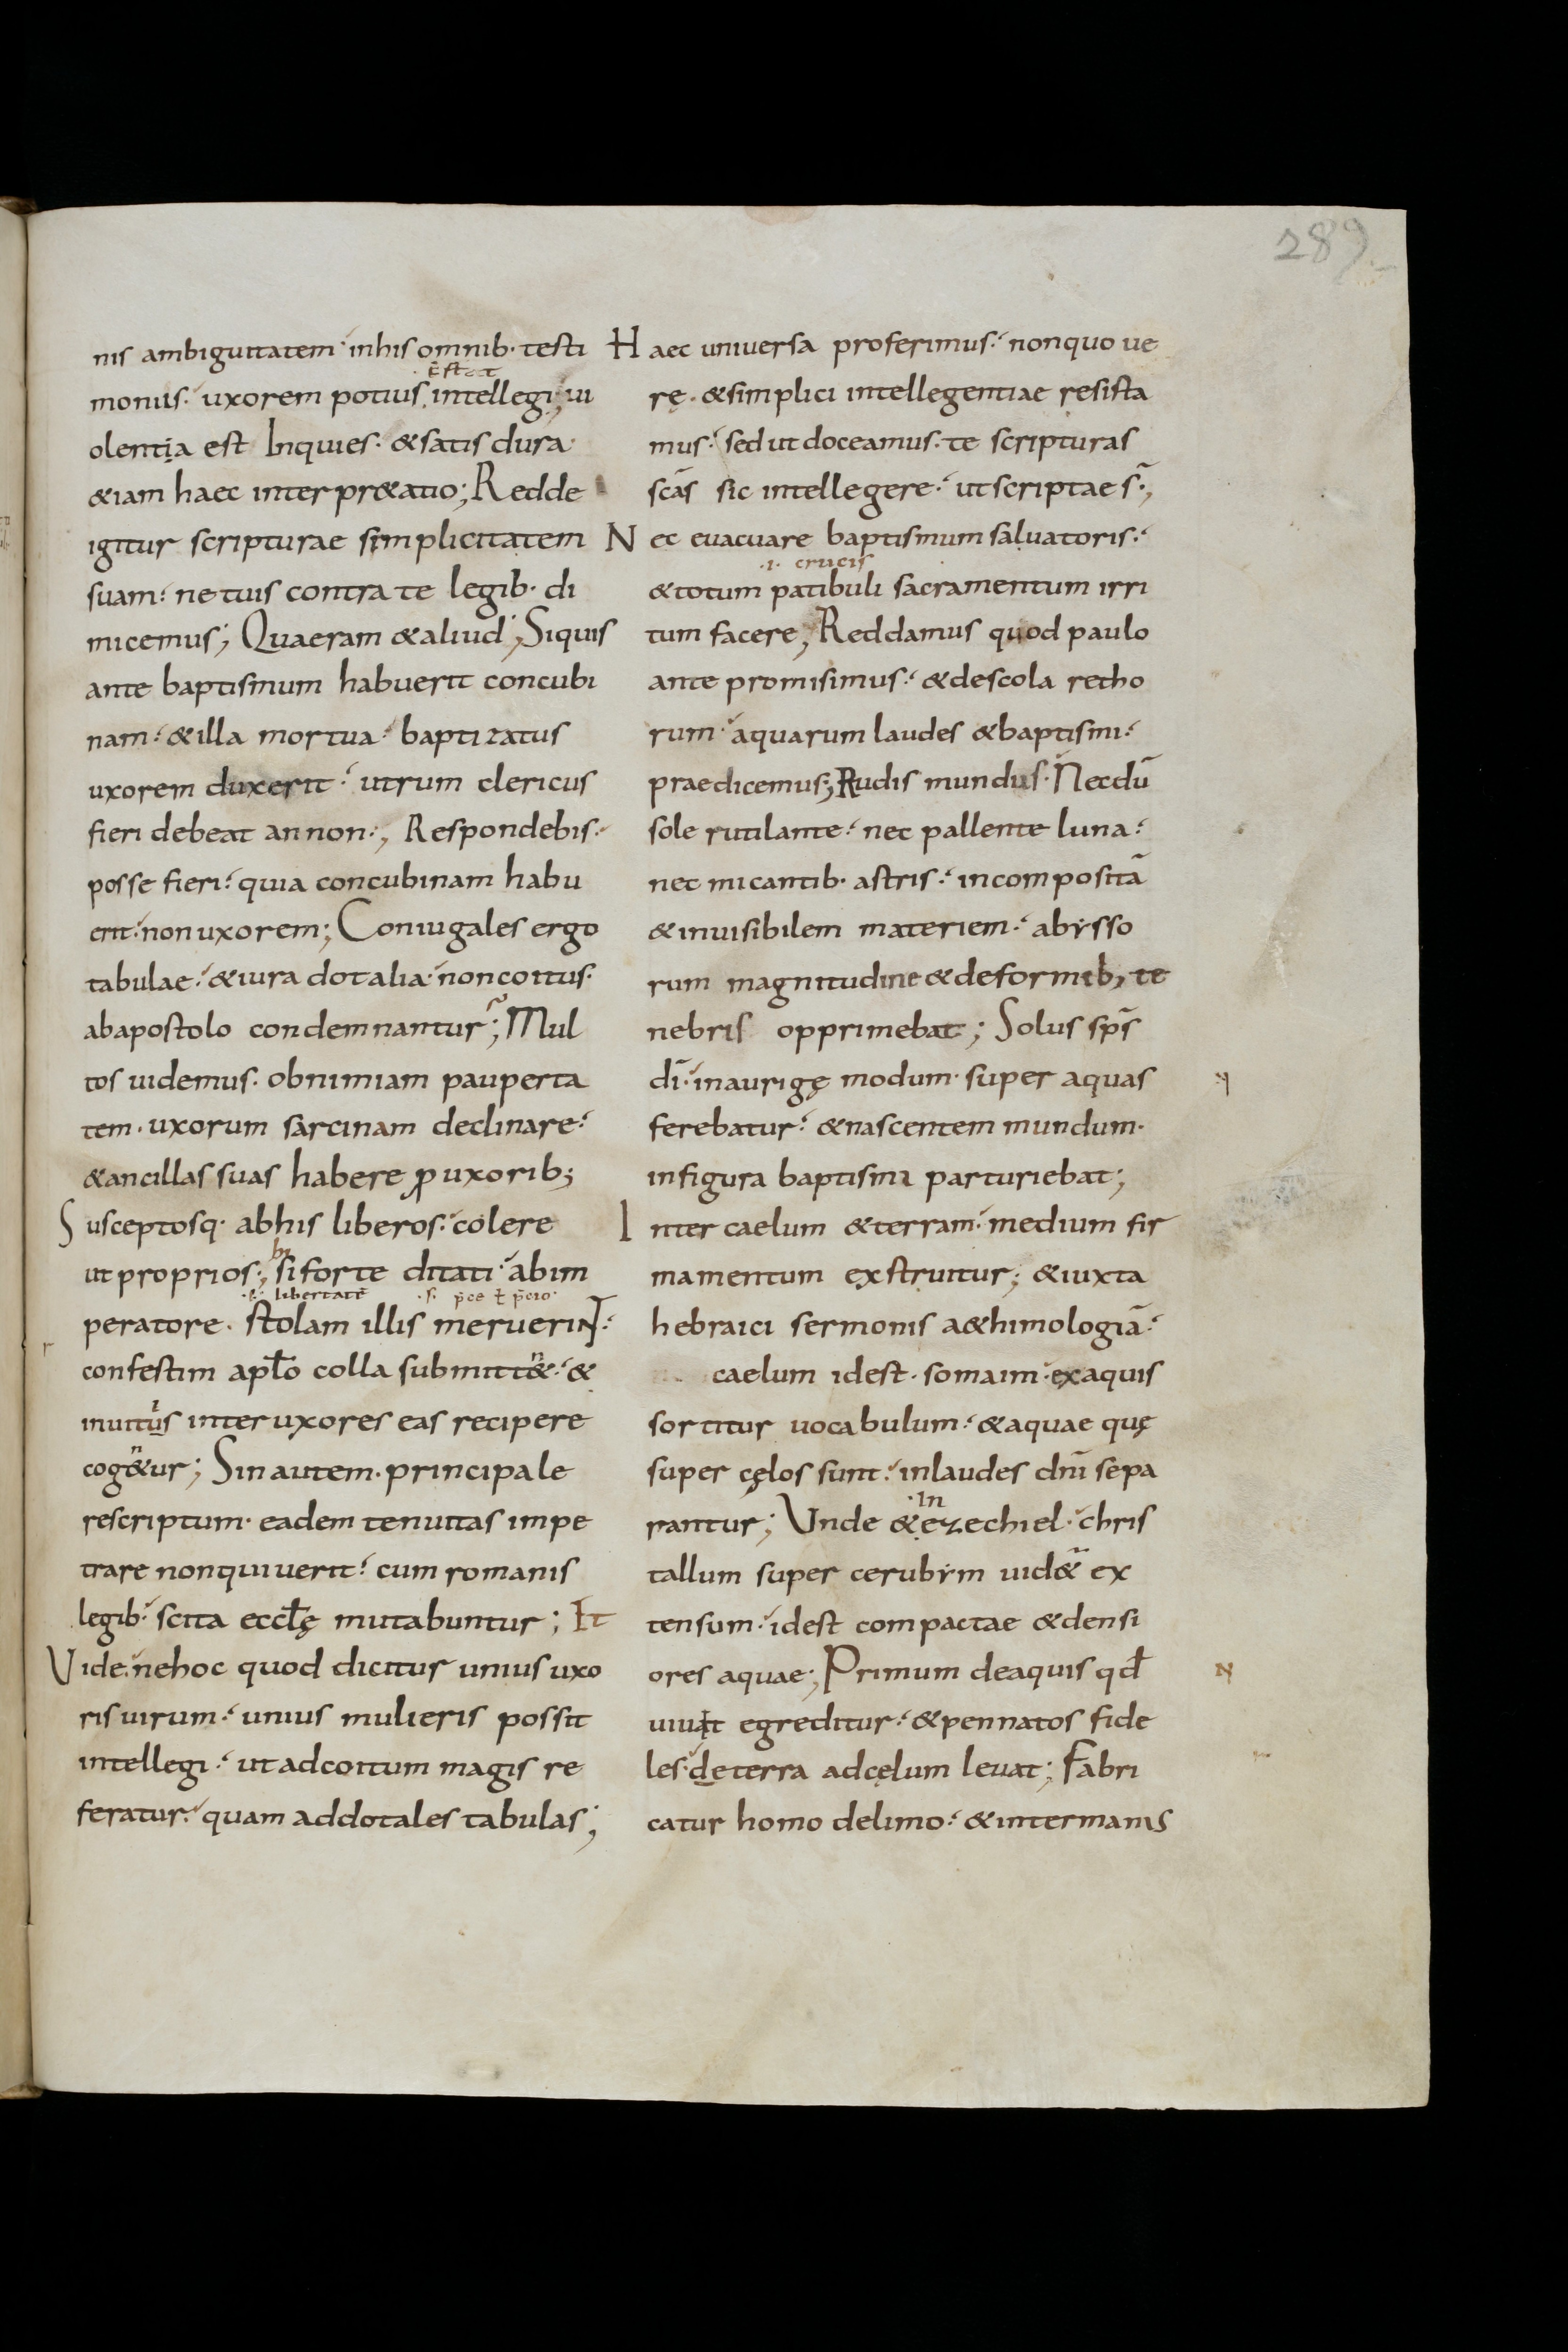 289
nis ambiguitatem· inhis omnib· testi
moniis· uxorem potius intellegi; ui
olentia est Inquies· &satis dura·
&iam haec interpr&atio; Redde
igitur scripturae simplicitatem
suam· ne tuis contra te legib· di
micemus; Quaeram &aliud; Siquis
ante baptismum habuerit concubi
nam· &illa mortua· baptizatus
uxorem duxerit· utrum clericus
fieri debeat annon·, Respondebis·
posse fieri· quia concubinam habu
erit· non uxorem; Coniugales ergo
tabulae· &iura dotalia· noncoitus·
abapostolo condemnantur; Mul
tos uidemus· obnimiam pauperta
tem· uxorum sarcinam declinare·
&ancillas suas habere ꝓ uxorib;
Susceptosq· abhis liberos· colere
ut proprios·, siforte ditati· abim
libertatē
peratore· stolam illis meruerint·
confestim apl̄o colla submitt&· &
inuitus inter uxores eas recipere
cog&ur; Sinautem· principale
rescriptum· eadem tenuitas impe
trare nonquiuerit· cum romanis
legib· scita eccl̄ę mutabuntur; Et
Vide· nehoc quod dicitur unius uxo
ris uirum· unius mulieris possit
intellegi· ut adcoitum magis re
feratur· quam addotales tabulas;
Haec uniuersa proferimus· nonquo ue
rę· &simplici intellegentiae resista
mus· sed ut doceamus· te scripturas
scās sic intellegere· ut scriptae s̄·,
Nec euacuare baptismum saluatoris·
·i· crucis
&totum patibuli sacramentum irri
tum facere, Reddamus quod paulo
ante promisimus· &descola retho
rum· aquarum laudes &baptismi·
praedicemus; Rudis mundus· Necdū
sole rutilante· nec pallente luna·
nec micantib· astris· incompositā
&inuisibilem materiem· abẏsso
rum magnitudine &deformib; te
nebris opprimebat; Solus sps̄
dī· inaurigę modum· super aquas
ferebatur· &nascentem mundum·
infigura baptismi parturiebat;
Inter caelum &terram· medium fir
mamentum exstruitur; &iuxta
hebraici sermonis a&himologiā·
caelum idest· somaim· exaquis
sortitur uocabulum· &aquae quę
super cęlos sunt· inlaudes dnī sepa
·in
rantur; Vnde &ezechiel· chris
tallum super cerubẏm uid& ex
tensum· idest compactae &densi
ores aquae; Primum deaquis qd̄
uiuit egreditur· &pennatos fide
les· deterra adcęlum leuat; Fabri
catur homo delimo· &intermanis